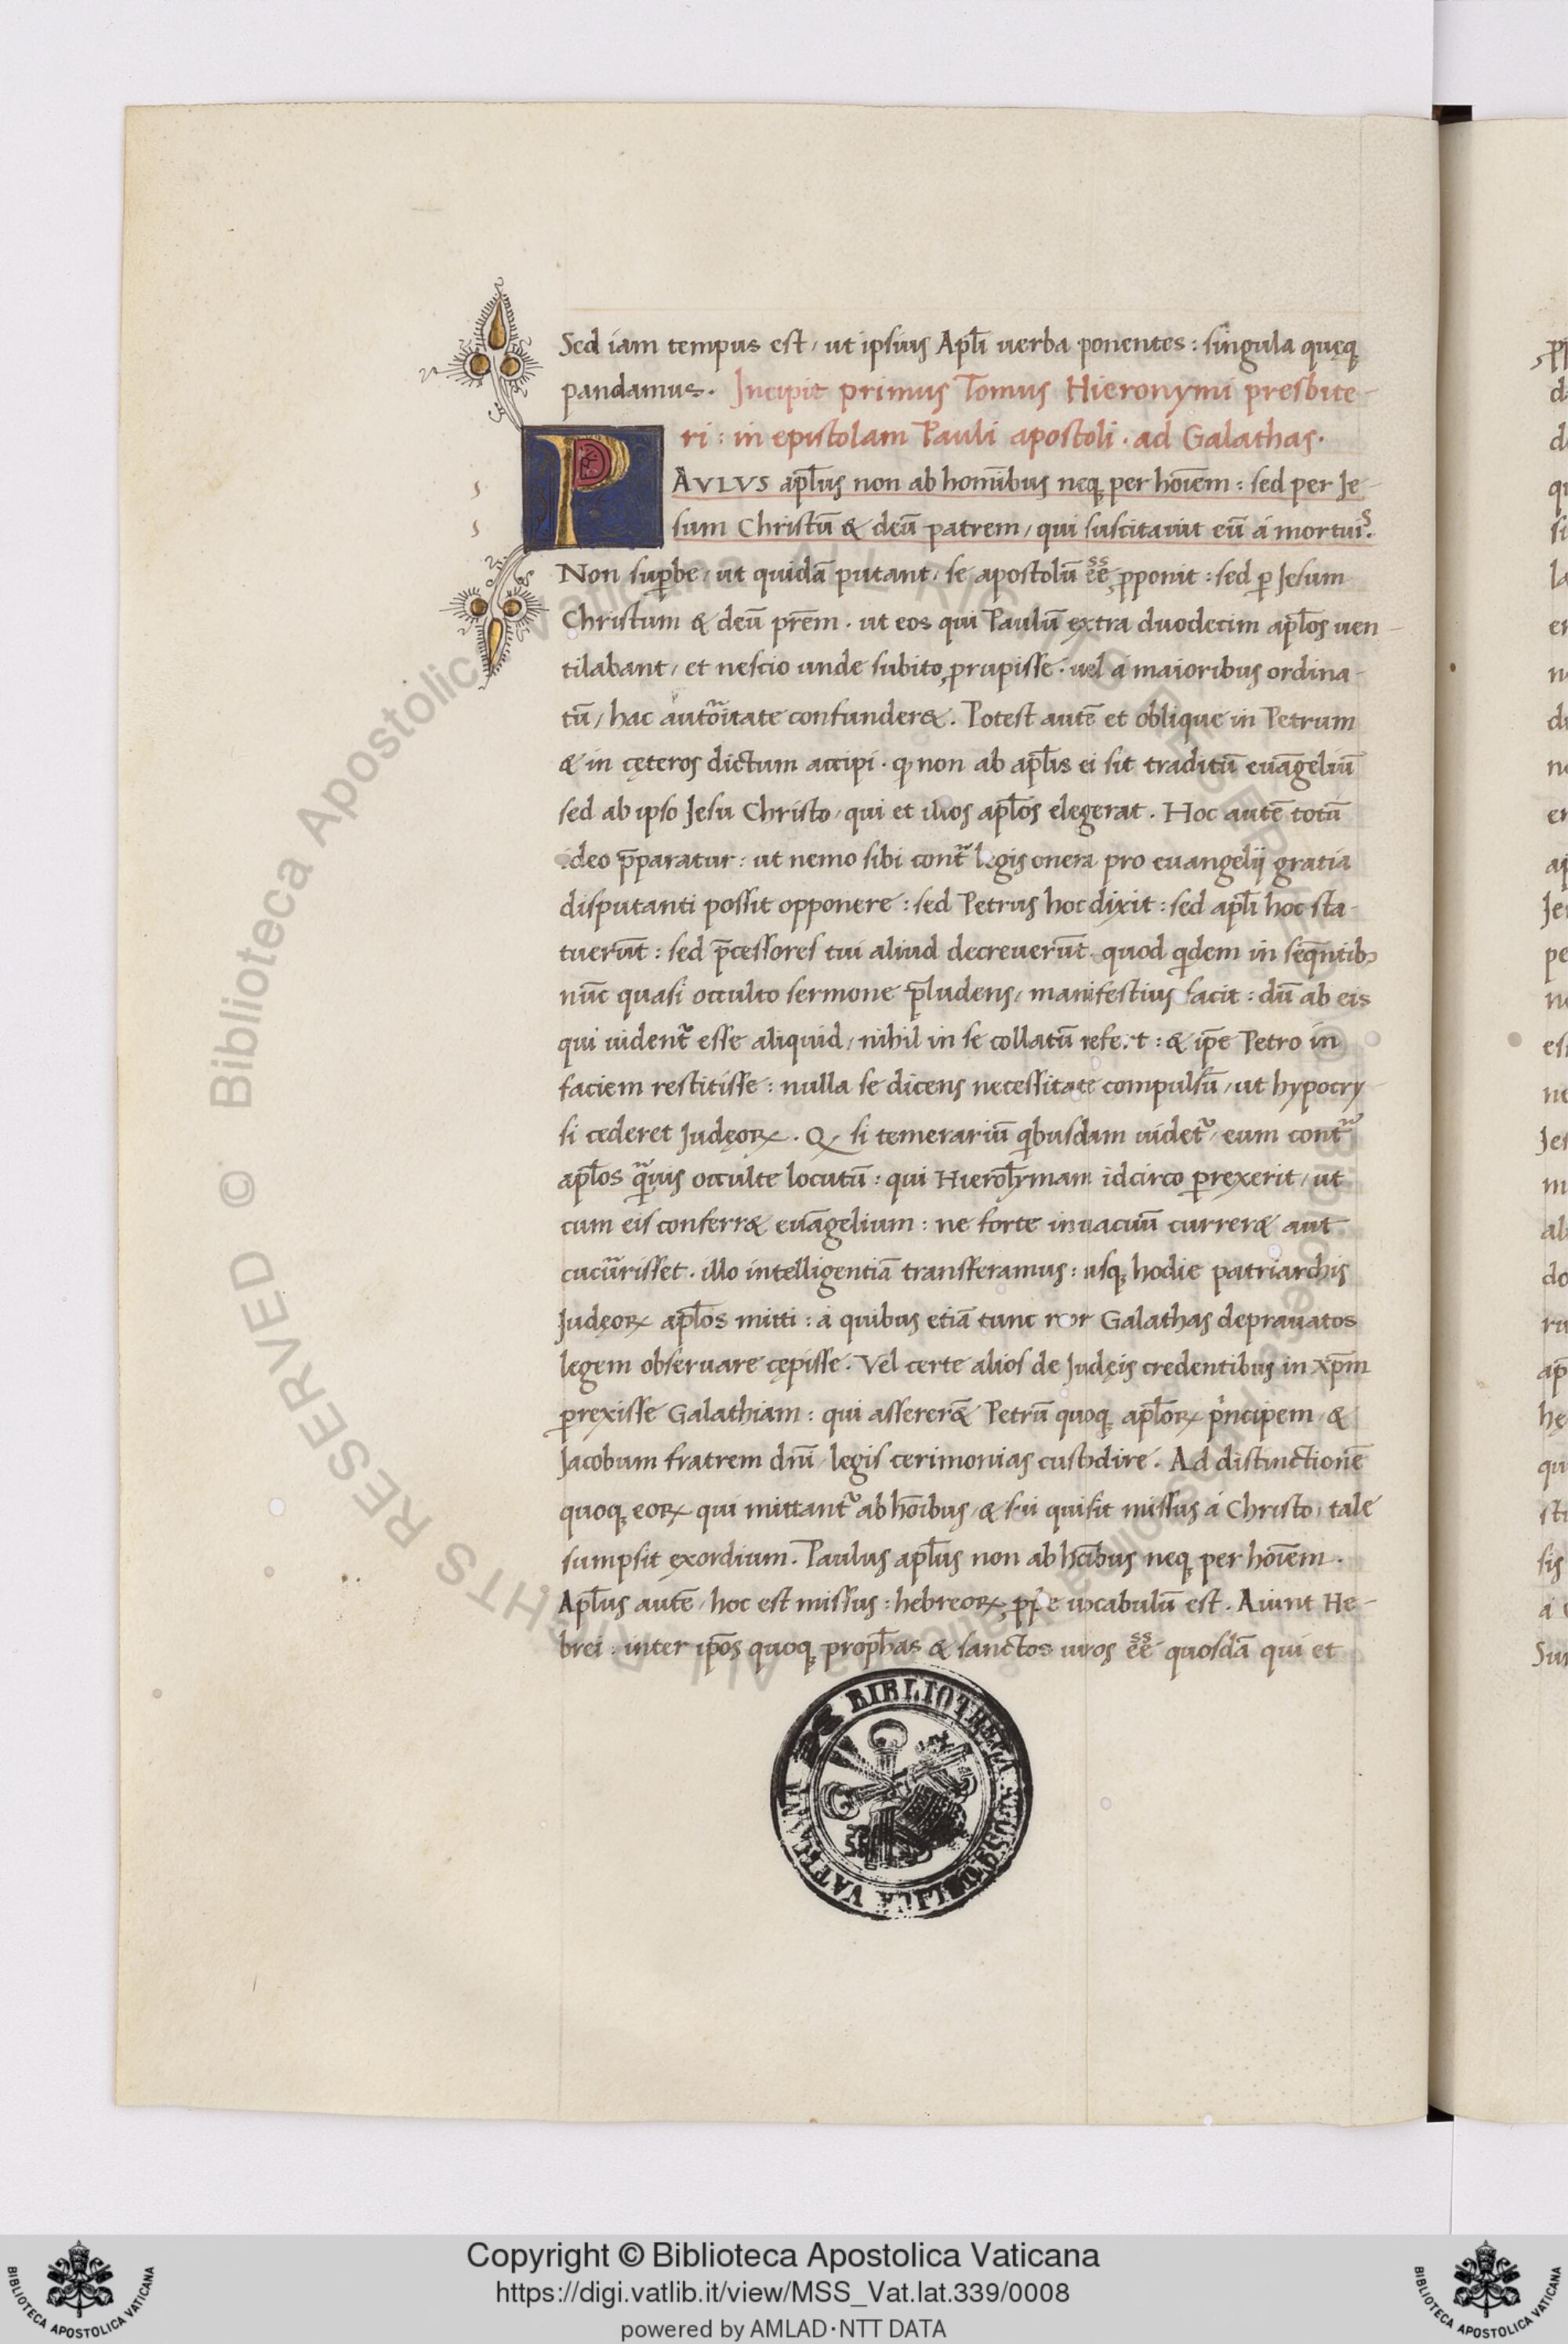 Sed iam tempus est, ut ipsius Apl̄i uerba ponentes: singula quęq;
pandamus. Incipit primus Tomus Hieronymi presbite-
ri: in epistolam Pauli apostoli. ad Galathas.
PAVLVS apl̄us non ab homībus neq; per hoīem: sed per Je-
sum Christū & deū patrem, qui suscitauit eū á mortuis.
Non sup̱be, ut quidā putant, se apostolū ēē p̱ponit: sed p̱ Jesum
Christum & deū pr̄em. ut eos qui Paulū extra duodecim apl̄os uen-
tilabant, et nescio unde subito p̱rupisse. uel á maioribus ordina-
tū, hac autōitate confunder&. Potest autē et oblique in Petrum
& in cęteros dictum accipi. ꝙ non ab apl̄is ei sit traditū euāgeliū
sed ab ipso Jesu Christo, qui et illos apl̄os elegerat. Hoc autē totū
ideo p̄paratur: ut nemo sibi contᷓ legis onera pro euangelij gratia
disputanti possit opponere: sed Petrus hoc dixit: sed apl̄i hoc sta-
tuerūt: sed p̄cessores tui aliud decreuerūt. quod qͥdem in seq̄ntibꝫ
nūc quasi occulto sermone p̄ludens, manifestius facit: dū ab eis
qui uident᷑ esse aliquid, nihil in se collatū refert: & ip̄e Petro in
faciem restitisse: nulla se dicens necessitate compulsū, ut hypocry
si cederet Judęoꝝ. Q si temerariū qͥbusdam uidet᷑, eum contᷓ
apl̄os qᷓuis occulte locutū: qui Hierosl̄ymam idcirco p̱rexerit, ut
cum eis conferr& euāgelium: ne forte in uacuū currer& aut
cucurrisset. illo intelligentiā transferamus: usq; hodie patriarchis
Judęoꝝ apl̄os mitti: á quibus etiā tunc reor Galathas deprauatos
legem obseruare cępisse. Vel certe alios de Judęis credentibus in xp̄m
p̱rexisse Galathiam: qui asserer&̄ Petrū quoq; apl̄oꝝ pͥncipem, &
Jacobum fratrem dn̄i, legis cerimonias custodire. Ad distinctionē
quoq; eoꝝ qui mittant᷑ ab hoībus, & sui qui sit missus á Christo, tale
sumpsit exordium. Paulus apl̄us non ab hoībus neq; per hoīem.
Apl̄us autē, hoc est missus: hebreoꝝ p̱pͥe uocabulū est. Aiunt He-
brei: inter ip̄os quoq; proph̄as & sanctos uiros ēē quosdā qui et
BIBLIOTHECA APOSTOLICA VATICANA
© Biblioteca Apostolica Vaticana ALL RIGHTS RESERVED
Copyright © Biblioteca Apostolica Vaticana
https://digi.vatlib.it/view/MSS_Vat.lat.339/0008
powered by AMLAD·NTT DATA
BIBLIOTECA APOSTOLICA VATICANA
BIBLIOTECA APOSTOLICA VATICANA